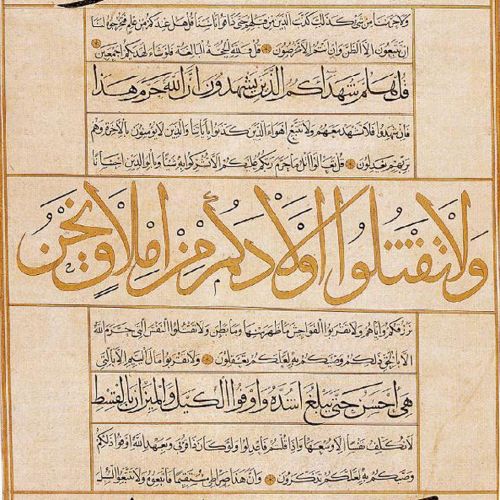 ولا حرمنا من شيء كذلك كذب الذين من قبلهم حتى ذاقوا بأسنا قل هل عندكم من علم فتخرجوه لنا
إن تتبعون إلا الظن وإن أنتم إلا تخرصون قل فلله الحجة البالغة فلو شاء لهدىكم أجمعين
قل هلم شهداءكم الذين يشهدون أن الله حرم هذا
فإن شهدوا فلا تشهد معهم ولا تتبع أهواء الذين كذبوا بآياتنا والذين لا يؤمنون بالآخرة وهم
بربهم يعدلون قل تعالوا أتل ما حرم ربكم عليكم ألا تشركوا به شيئا وبالوالدين إحسانا
ولا تقتلوا أولادكم من إملاق نحن
نرزقكم وإياهم ولا تقربوا الفواحش ما ظهر منها وما بطن ولا تقتلوا النفس التي حرم الله
إلا بالحق ذلكم وصىكم به لعلكم تعقلون ولا تقربوا مال اليتيم إلا بالتي
هي أحسن حتى يبلغ أشده وأوفوا الكيل والميزان بالقسط
لا نكلف نفسا إلا وسعها وإذا قلتم فاعدلوا ولو كان ذا قربى وبعهد الله أوفوا ذلكم
وصىكم به لعلكم تذكرون وأن هذا صراطي مستقيما فاتبعوه ولا تتبعوا السبل